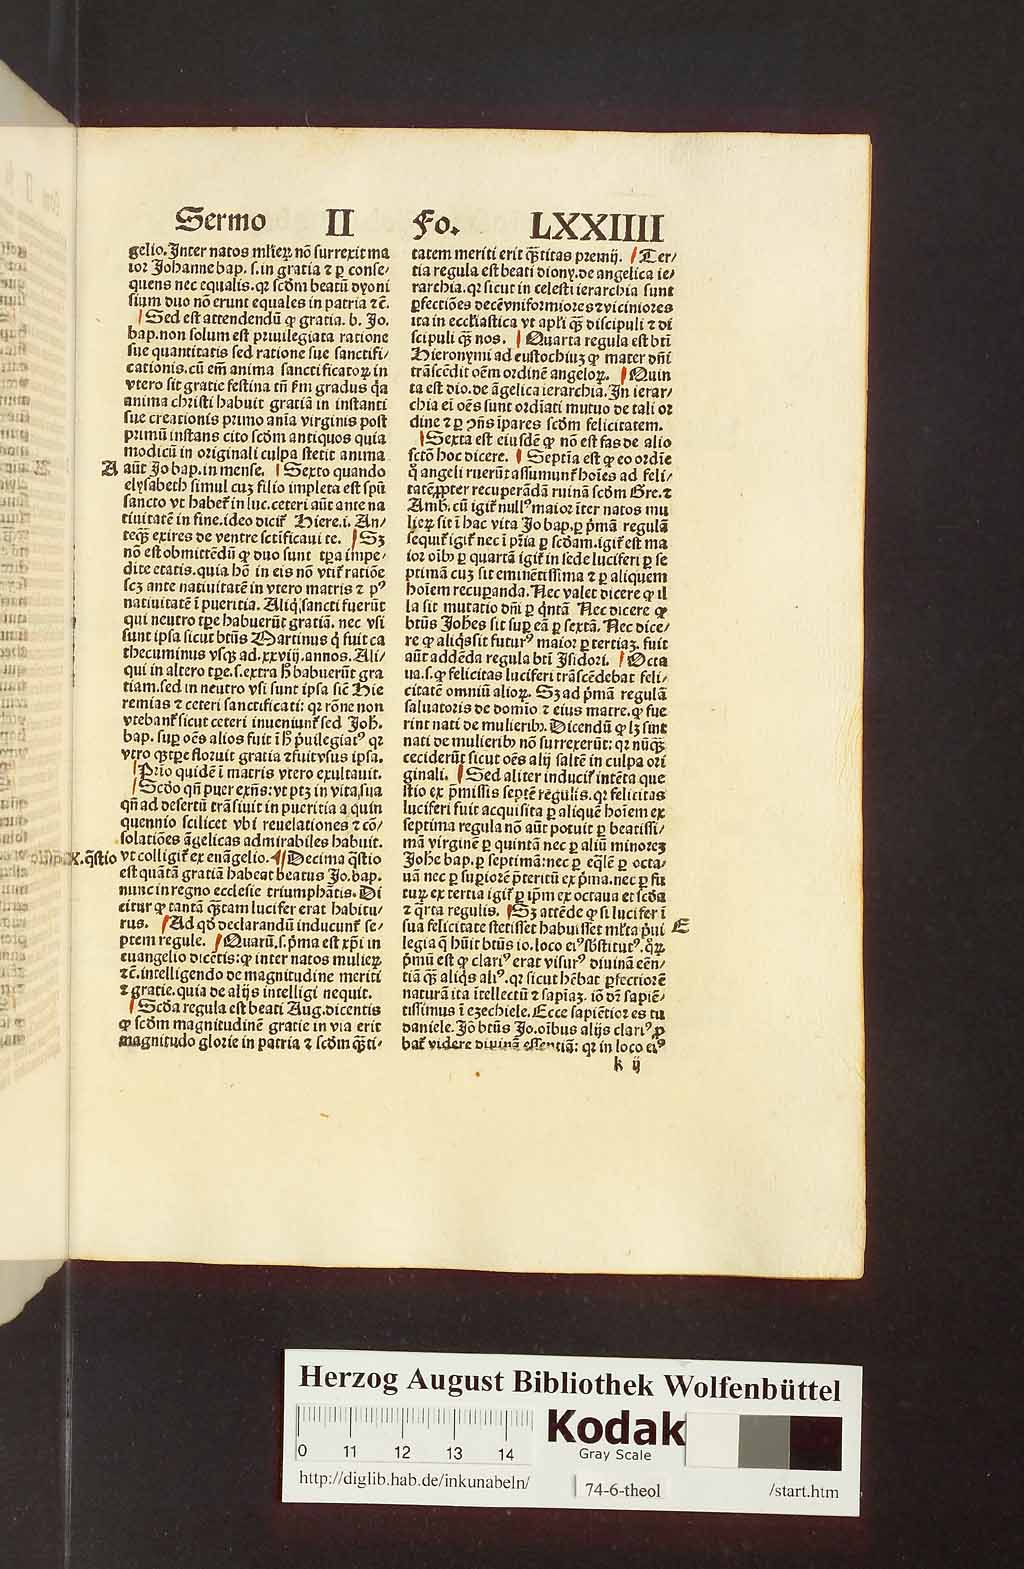 Sermo II Fo. LXXIIII
gelio. Inter natos ml'ieꝝ nō surrexit ma
ior Johanne bap. s. in gratia ⁊ ꝑ conse/
quens nec equalis. qꝛ scd̄m beatū dyoni
sium duo nō erunt equales in patria ⁊c̄.
Sed est attendendū ꝙ gratia. b. Jo.
bap. non solum est priuilegiata ratione
sue quantitatis sed ratione sue sanctifi/
cationis. cū em̄ anima sanctificatoꝝ in
vtero sit gratie festina tn̄ fm̄ gradus q̄a
anima christi habuit gratiā in instanti
sue creationis primo anīa virginis post
primū instans cito scd̄m antiquos quia
modicū in originali culpa stetit anima
A aūt Jo bap. in mense. Sexto quando
elysabeth simul cuꝫ filio impleta est spū
sancto vt habet᷑ in luc. ceteri aūt ante na
tiuitatē in fine. ideo dicit᷑ Hiere. i. An/
teq̄ꝫ exires de ventre sctificaui te. Sꝫ
nō est obmittēdū ꝙ duo sunt tꝑa impe/
dite etatis. quia hō in eis nō vtit᷑ ratiōe
scꝫ ante natiuitatē in vtero matris ⁊ pꝰ
natiuitatē ī pueritia. Aliq̇ sancti fuerūt
qui neutro tꝑe habuerūt gratiā. nec vsi
sunt ipsa sicut btūs Martinus q̇ fuit ca
thecuminus vsqꝫ ad. xxviij. annos. Ali/
qui in altero tꝑe. s. extra hꝭ habuerūt gra
tiam. sed in neutro vsi sunt ipsa sic̄ Hie
remias ⁊ ceteri sanctificati: qꝛ rōne non
vtebant᷑ sicut ceteri inueniunt᷑ sed Joh̄.
bap. suꝑ oēs alios fuit ī hꝭ p̄uilegiatꝰ qꝛ
vtro qꝫ tꝑe floruit gratia ⁊ fuit vsus ipsa.
Prīo quidē ī matris vtero exultauit.
Scd̄o qn̄ puer exn̄s: vt ptꝫ in vita sua
qn̄ ad desertū trāsiuit in pueritia a quin
quennio scilicet vbi reuelationes ⁊ cō/
solatiōes āgelicas admirabiles habuit.
X. q̄stio vt colligit᷑ ex euāgelio. Decima q̄stio
est quātā gratiā habeat beatus Jo. bap.
nunc in regno ecclesie triumphātis. Di
citur ꝙ tantā q̄ꝫtam lucifer erat habitu/
rus. Ad qd̄ declarandū inducunt᷑ se/
ptem regule. Quarū. s. p̄ma est xp̄i in
euangelio dicētis: ꝙ inter natos mulieꝝ
⁊c̄. intelligendo de magnitudine meriti
⁊ gratie. quia de alijs intelligi nequit.
Scd̄a regula est beati Aug. dicentis
ꝙ scd̄m magnitudinē gratie in via erit
magnitudo glorie in patria ⁊ scd̄m q̄ꝫti/
tatem meriti erit q̄ꝫtitas premij. Ter/
tia regula est beati diony. de angelica ie/
rarchia. qꝛ sicut in celesti ierarchia sunt
ꝑfectiōes decē vniformiores ⁊ viciniores
ita in eccl'iastica vt apl'i q̄ꝫ discipuli ⁊ di
scipuli q̄ꝫ nos. Quarta regula est btī
Hieronymi ad eustochiuꝫ ꝙ mater dn̄i
trāscēdit oēm ordinē angeloꝝ. Quin
ta est dio. de āgelica ierarchia. In ierar/
chia ei oēs sunt ordīati mutuo de tali or
dine ⁊ ꝑ ꝯn̄s īpares scd̄m felicitatem.
Sexta est eiusdē ꝙ nō est fas de alio
sctō hoc dicere. Septīa est ꝙ eo ordīe
q̊ angeli ruerūt assumunt᷑ hoīes ad feli/
tatē ꝓpter recuperādā ruinā scd̄m Gre. ⁊
Amb. cū igit᷑ nullꝰ maior īter natos mu
lieꝝ sit ī hac vita Jo bap. ꝑ p̄mā regulā
sequit᷑ igit᷑ nec ī pr̄ia ꝑ scd̄am. igit᷑ est ma
ior oībꝰ ꝑ quartā igit᷑ in sede luciferi ꝑ se
ptimā cuꝫ sit eminētissima ⁊ ꝑ aliquem
hoīem recuꝑanda. Nec valet dicere ꝙ il
la sit mutatio dn̄i ꝑ q̇ntā Nec dicere ꝙ
btūs Joh̄es sit suꝑ eā ꝑ sextā. Nec dice/
re ꝙ aliq̇s sit futurꝰ maior ꝑ tertiaꝫ. fuit
aūt addēda regula btī Jsidori. Octa
ua. s. ꝙ felicitas luciferi trāscēdebat feli/
citatē omniū alioꝝ. Sꝫ ad p̄mā regulā
saluatoris de domīo ⁊ eius matre. ꝙ fue
rint nati de mulieribꝫ. Dicendū ꝙ lꝫ sint
nati de mulieribꝫ nō surrexerūt: qꝛ nūq̄ꝫ
ceciderūt sicut oēs alij saltē in culpa ori
ginali. Sed aliter inducit᷑ intēta que
stio ex p̄missis septē regulis. qꝛ felicitas
luciferi fuit acquisita ꝑ aliquē hoīem ex
septima regula nō aūt potuit ꝑ beatissi/
mā virginē ꝑ quintā nec ꝑ aliū minoreꝫ
Joh̄e bap. ꝑ septimā: nec ꝑ eq̄lē ꝑ octa/
uā nec ꝑ suꝑiorē p̄teritū ex p̄ma. nec ꝑ fu
tuꝝ ex tertia igit᷑ ꝑ ip̄m ex octaua et scd̄a
⁊ q̄rta regulis. Sꝫ attēde ꝙ si lucifer ī
sua felicitate stetisset habuisset ml'ta p̄ui E
legia q̄ hūit btūs io. loco eiꝰ sb̄stitutꝰ. qͦꝝ
p̄mū est ꝙ clariꝰ erat visurꝰ diuinā eēn/
tiā q̄ꝫ aliq̇s aliꝰ. qꝛ sicut hēbat ꝑfectiorē
naturā ita ītellectū ⁊ sapiaꝫ. iō dr̄ sapiē/
tissimus ī ezechiele. Ecce sapiētior es tu
daniele. Jō btūs Jo. oībus alijs clariꝰ ꝓ
bat᷑ videre diuinā essentiā: qꝛ in loco eiꝰ
k ij
Herzog August Bibliothek Wolfenbüttel
0 11 12 13 14
Kodak
Gray Scale
http://diglib.hab.de/inkunabeln/
74-6-theol
/start.htm